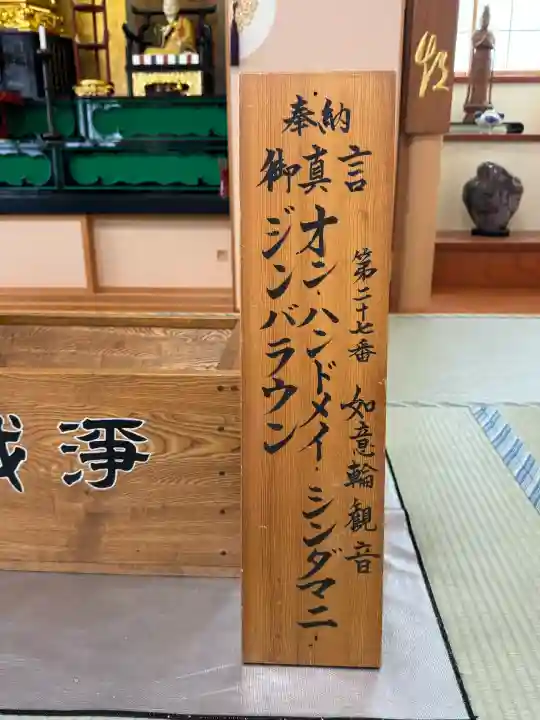 奉納
御真言
第二十七番 如意輪観音
オン・ハンドメイ・シンダマニ・
ジンバラウン
浄